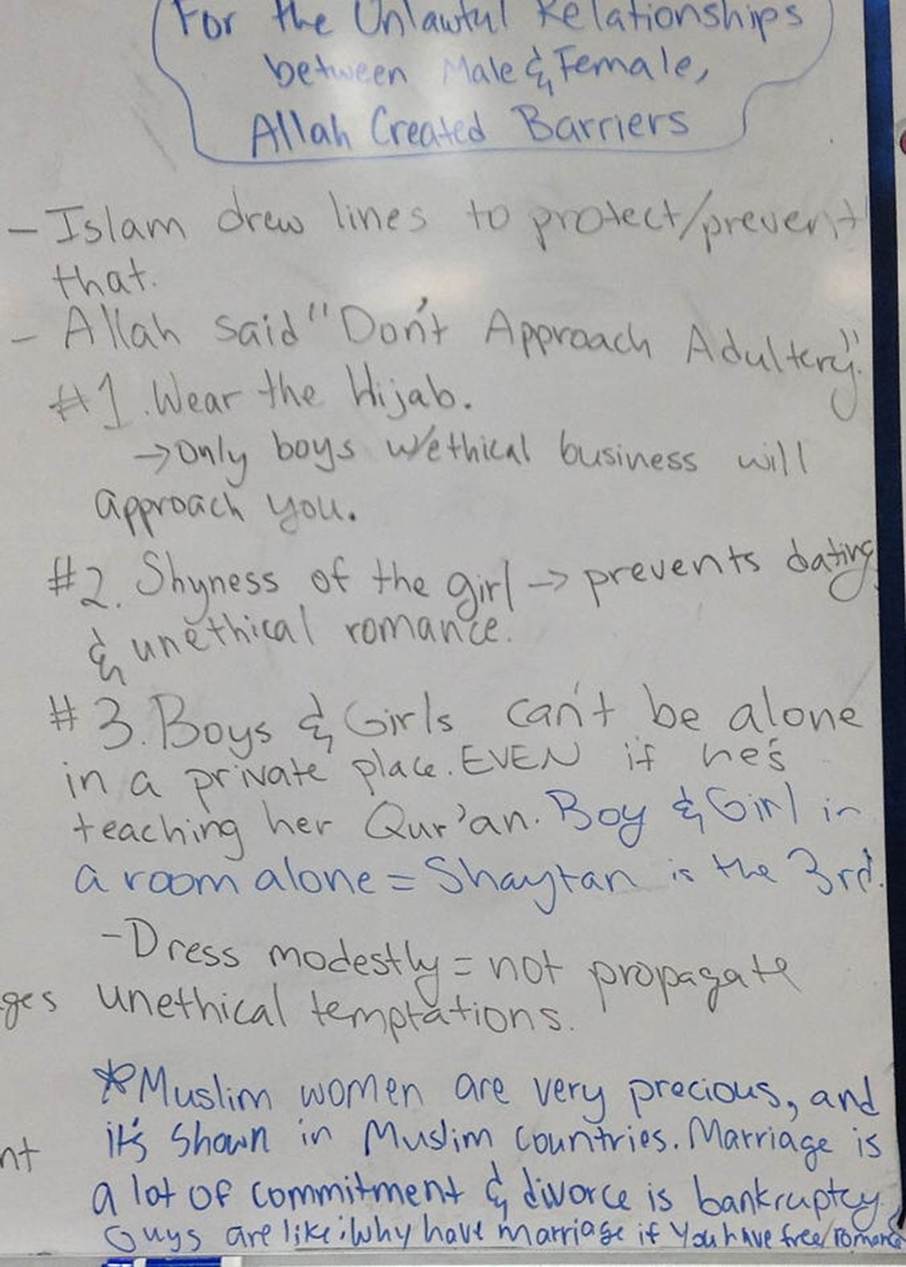 For the Unlawful Relationships
between Male & Female,
Allah Created Barriers
- Islam drew lines to protect/prevent
that.
- Allah said "Don't Approach Adultery".
#1. Wear the Hijab.
→ Only boys w/ethical business will
approach you.
#2. Shyness of the girl → prevents dating
& unethical romance.
#3. Boys & Girls can't be alone
in a private place. EVEN if he's
teaching her Qur'an. Boy & Girl in
a room alone = Shaytan is the 3rd.
- Dress modestly = not propagate
ges unethical temptations.
*Muslim women are very precious, and
nt it's shown in Muslim countries. Marriage is
a lot of commitment & divorce is bankruptcy.
Guys are like: Why have marriage if you have free/romance